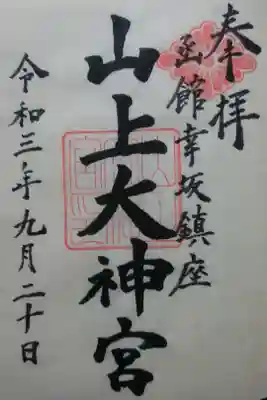 奉拝
函館幸坂鎮座
山上大神宮
令和三年九月二十日